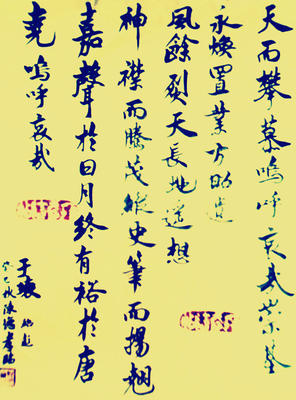 天而攀慕嗚呼哀哉崇基
永煥置業方昭遺
風餘烈天長地遥想
神襟而騰茂縱史筆而揚翹
嘉聲於日月終有裕於唐
堯嗚呼哀哉
癸巳秋